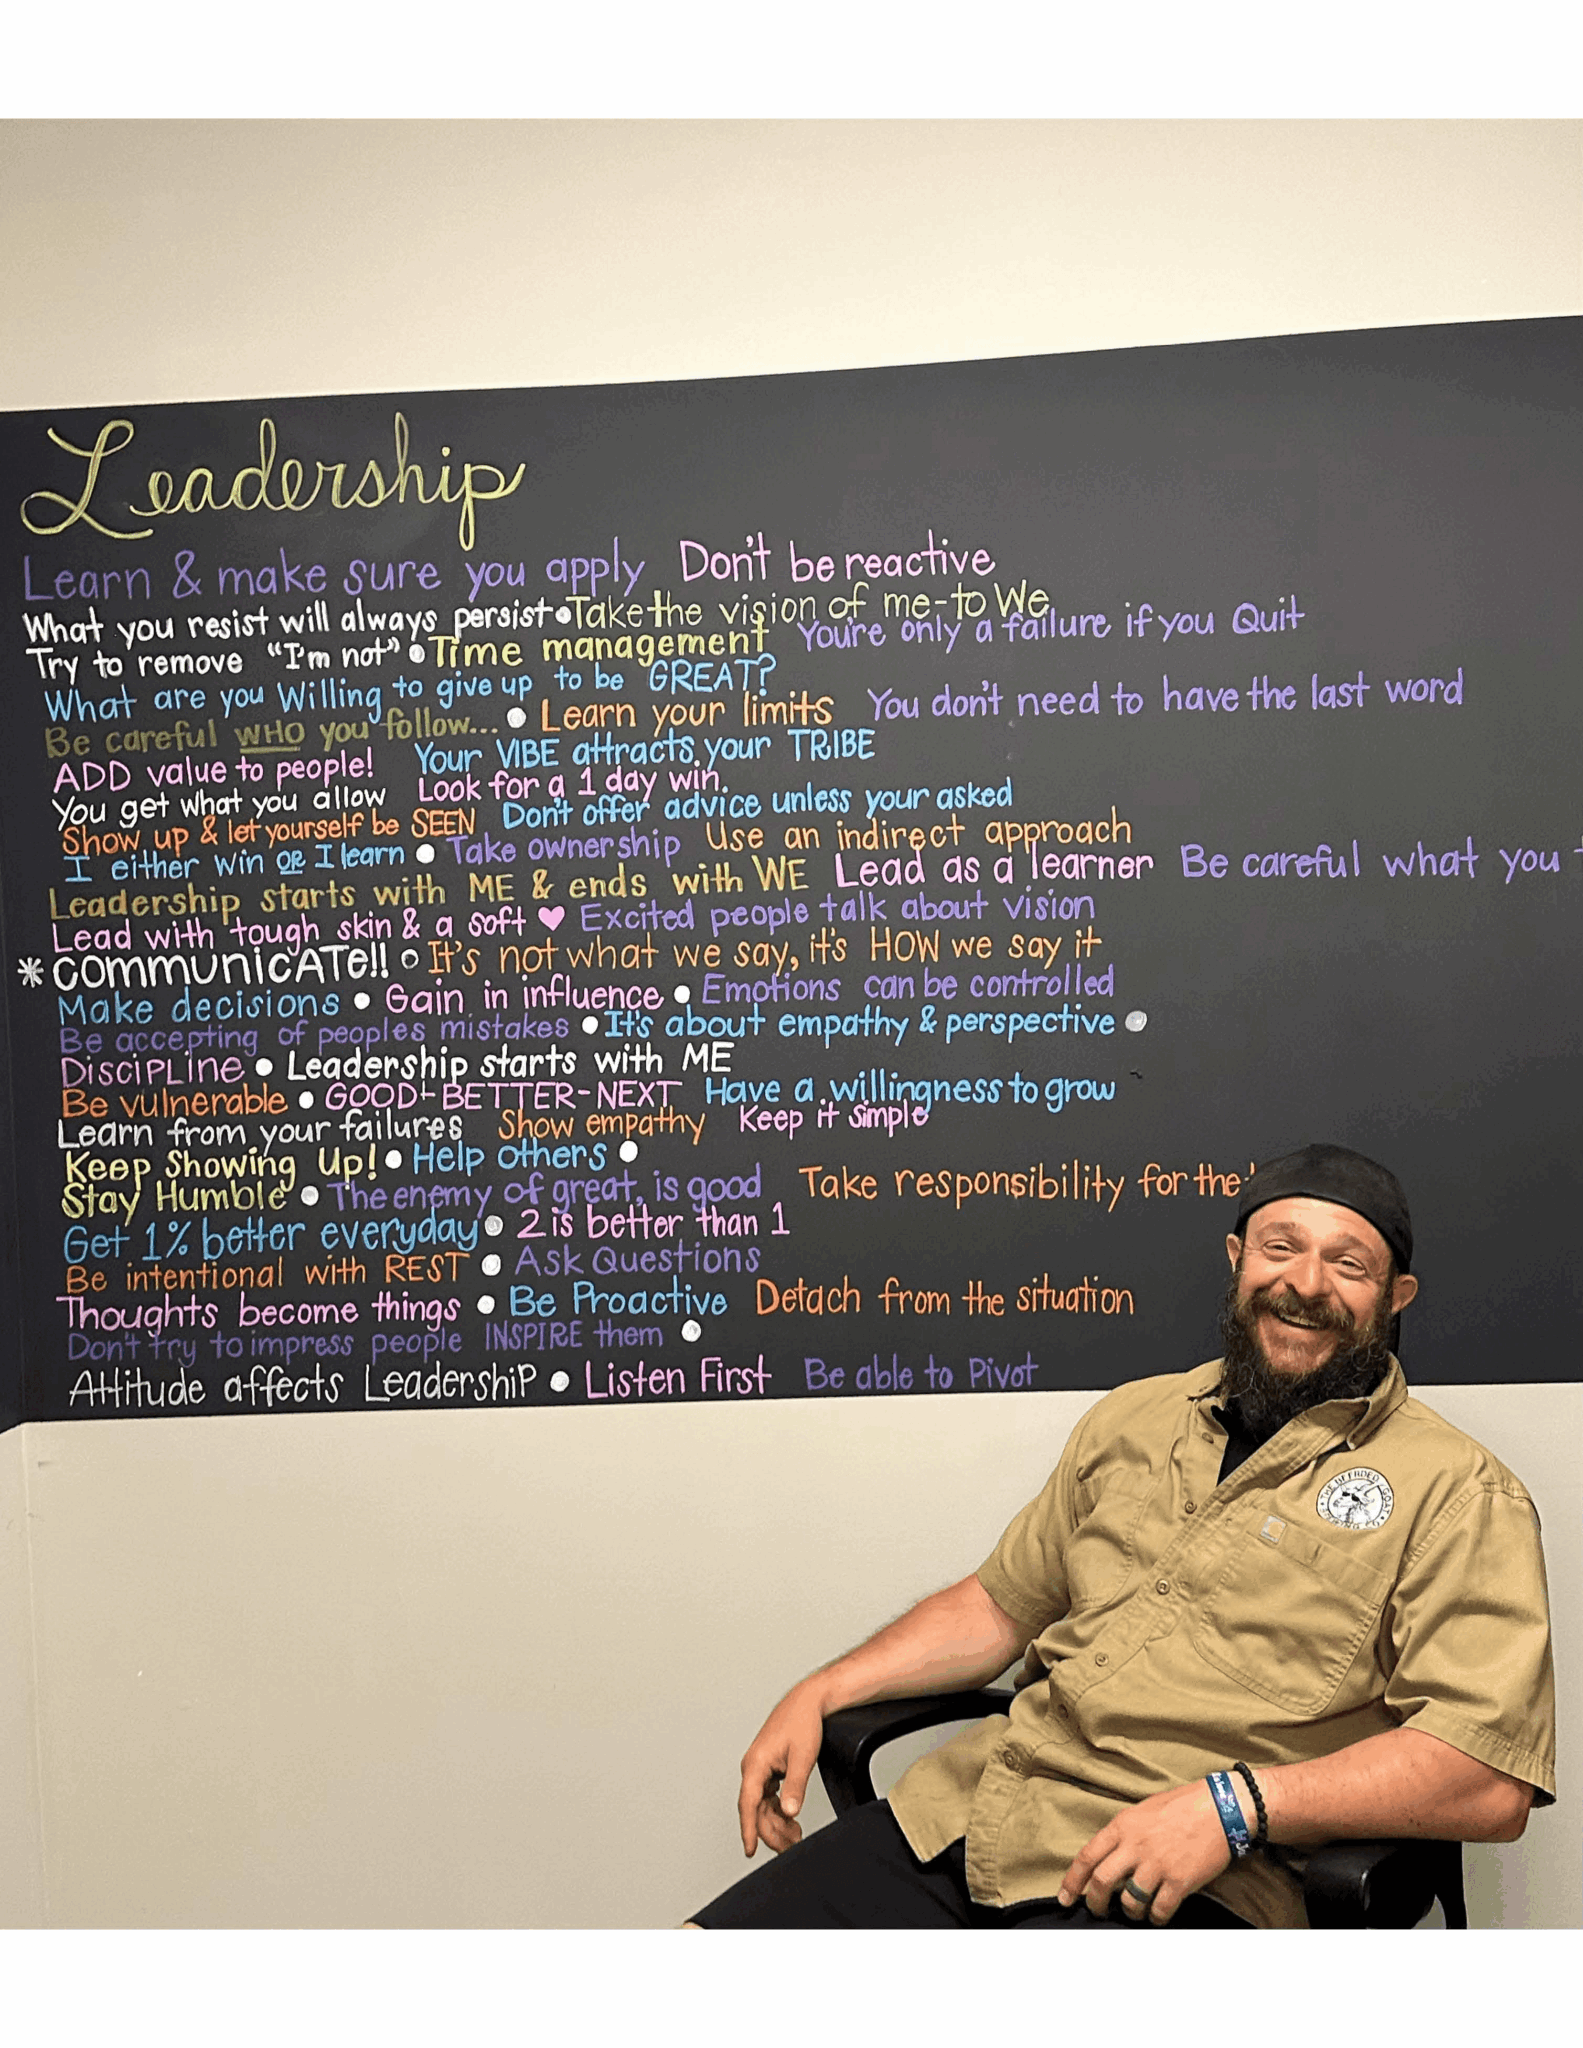 Leadership
Learn & make sure you apply Don't be reactive
What you resist will always persist • Take the vision of me-to We
Try to remove "I'm not" • Time management You're only a failure if you Quit
What are you Willing to give up to be GREAT?
Be careful WHO you follow... • Learn your limits You don't need to have the last word
ADD value to people! Your VIBE attracts your TRIBE
You get what you allow Look for a 1 day win.
Show up & let yourself be SEEN Don't offer advice unless your asked
I either win OR I learn • Take ownership Use an indirect approach
Leadership starts with ME & ends with WE Lead as a learner Be careful what you
Lead with tough skin & a soft ♥ Excited people talk about vision
* COMMUNICATE!! • It's not what we say, it's HOW we say it
Make decisions • Gain in influence • Emotions can be controlled
Be accepting of peoples mistakes • It's about empathy & perspective •
DISCIPLINE • Leadership starts with ME
Be vulnerable • GOOD-BETTER-NEXT Have a willingness to grow
Learn from your failures Show empathy Keep it simple
Keep Showing Up! • Help others •
Stay Humble • The enemy of great, is good Take responsibility for the
Get 1% better everyday • 2 is better than 1
Be intentional with REST • Ask Questions
Thoughts become things • Be Proactive Detach from the situation
Don't try to impress people INSPIRE them •
Attitude affects LeadershiP • Listen First Be able to Pivot
THE BEARDED GOAT